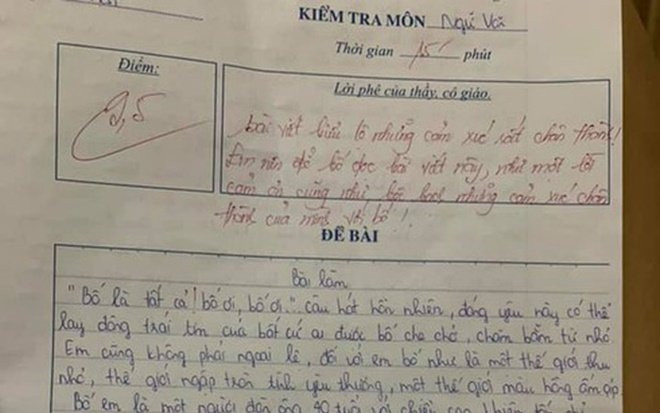 KIỂM TRA MÔN Ngữ Văn
Thời gian 15' phút
Điểm:
9,5
Lời phê của thầy, cô giáo.
bài viết biểu lộ những cảm xúc rất chân thành!
Em nên để bố đọc bài viết này, như một lời
cảm ơn cũng như bộc bạch những cảm xúc chân
thành của mình với bố!
ĐỀ BÀI
Bài làm
"Bố là tất cả! bố ơi, bố ơi." câu hát hồn nhiên, đáng yêu này có thể
lay động trái tim của bất cứ ai được bố che chở, chăm bẵm từ nhỏ
Em cũng không phải ngoại lệ, đối với em bố như là một thế giới thu
nhỏ, thế giới ngập tràn tình yêu thương, một thế giới màu hồng ấm áp
Bố em là một người đàn ông 40 tuổi với chiều cao